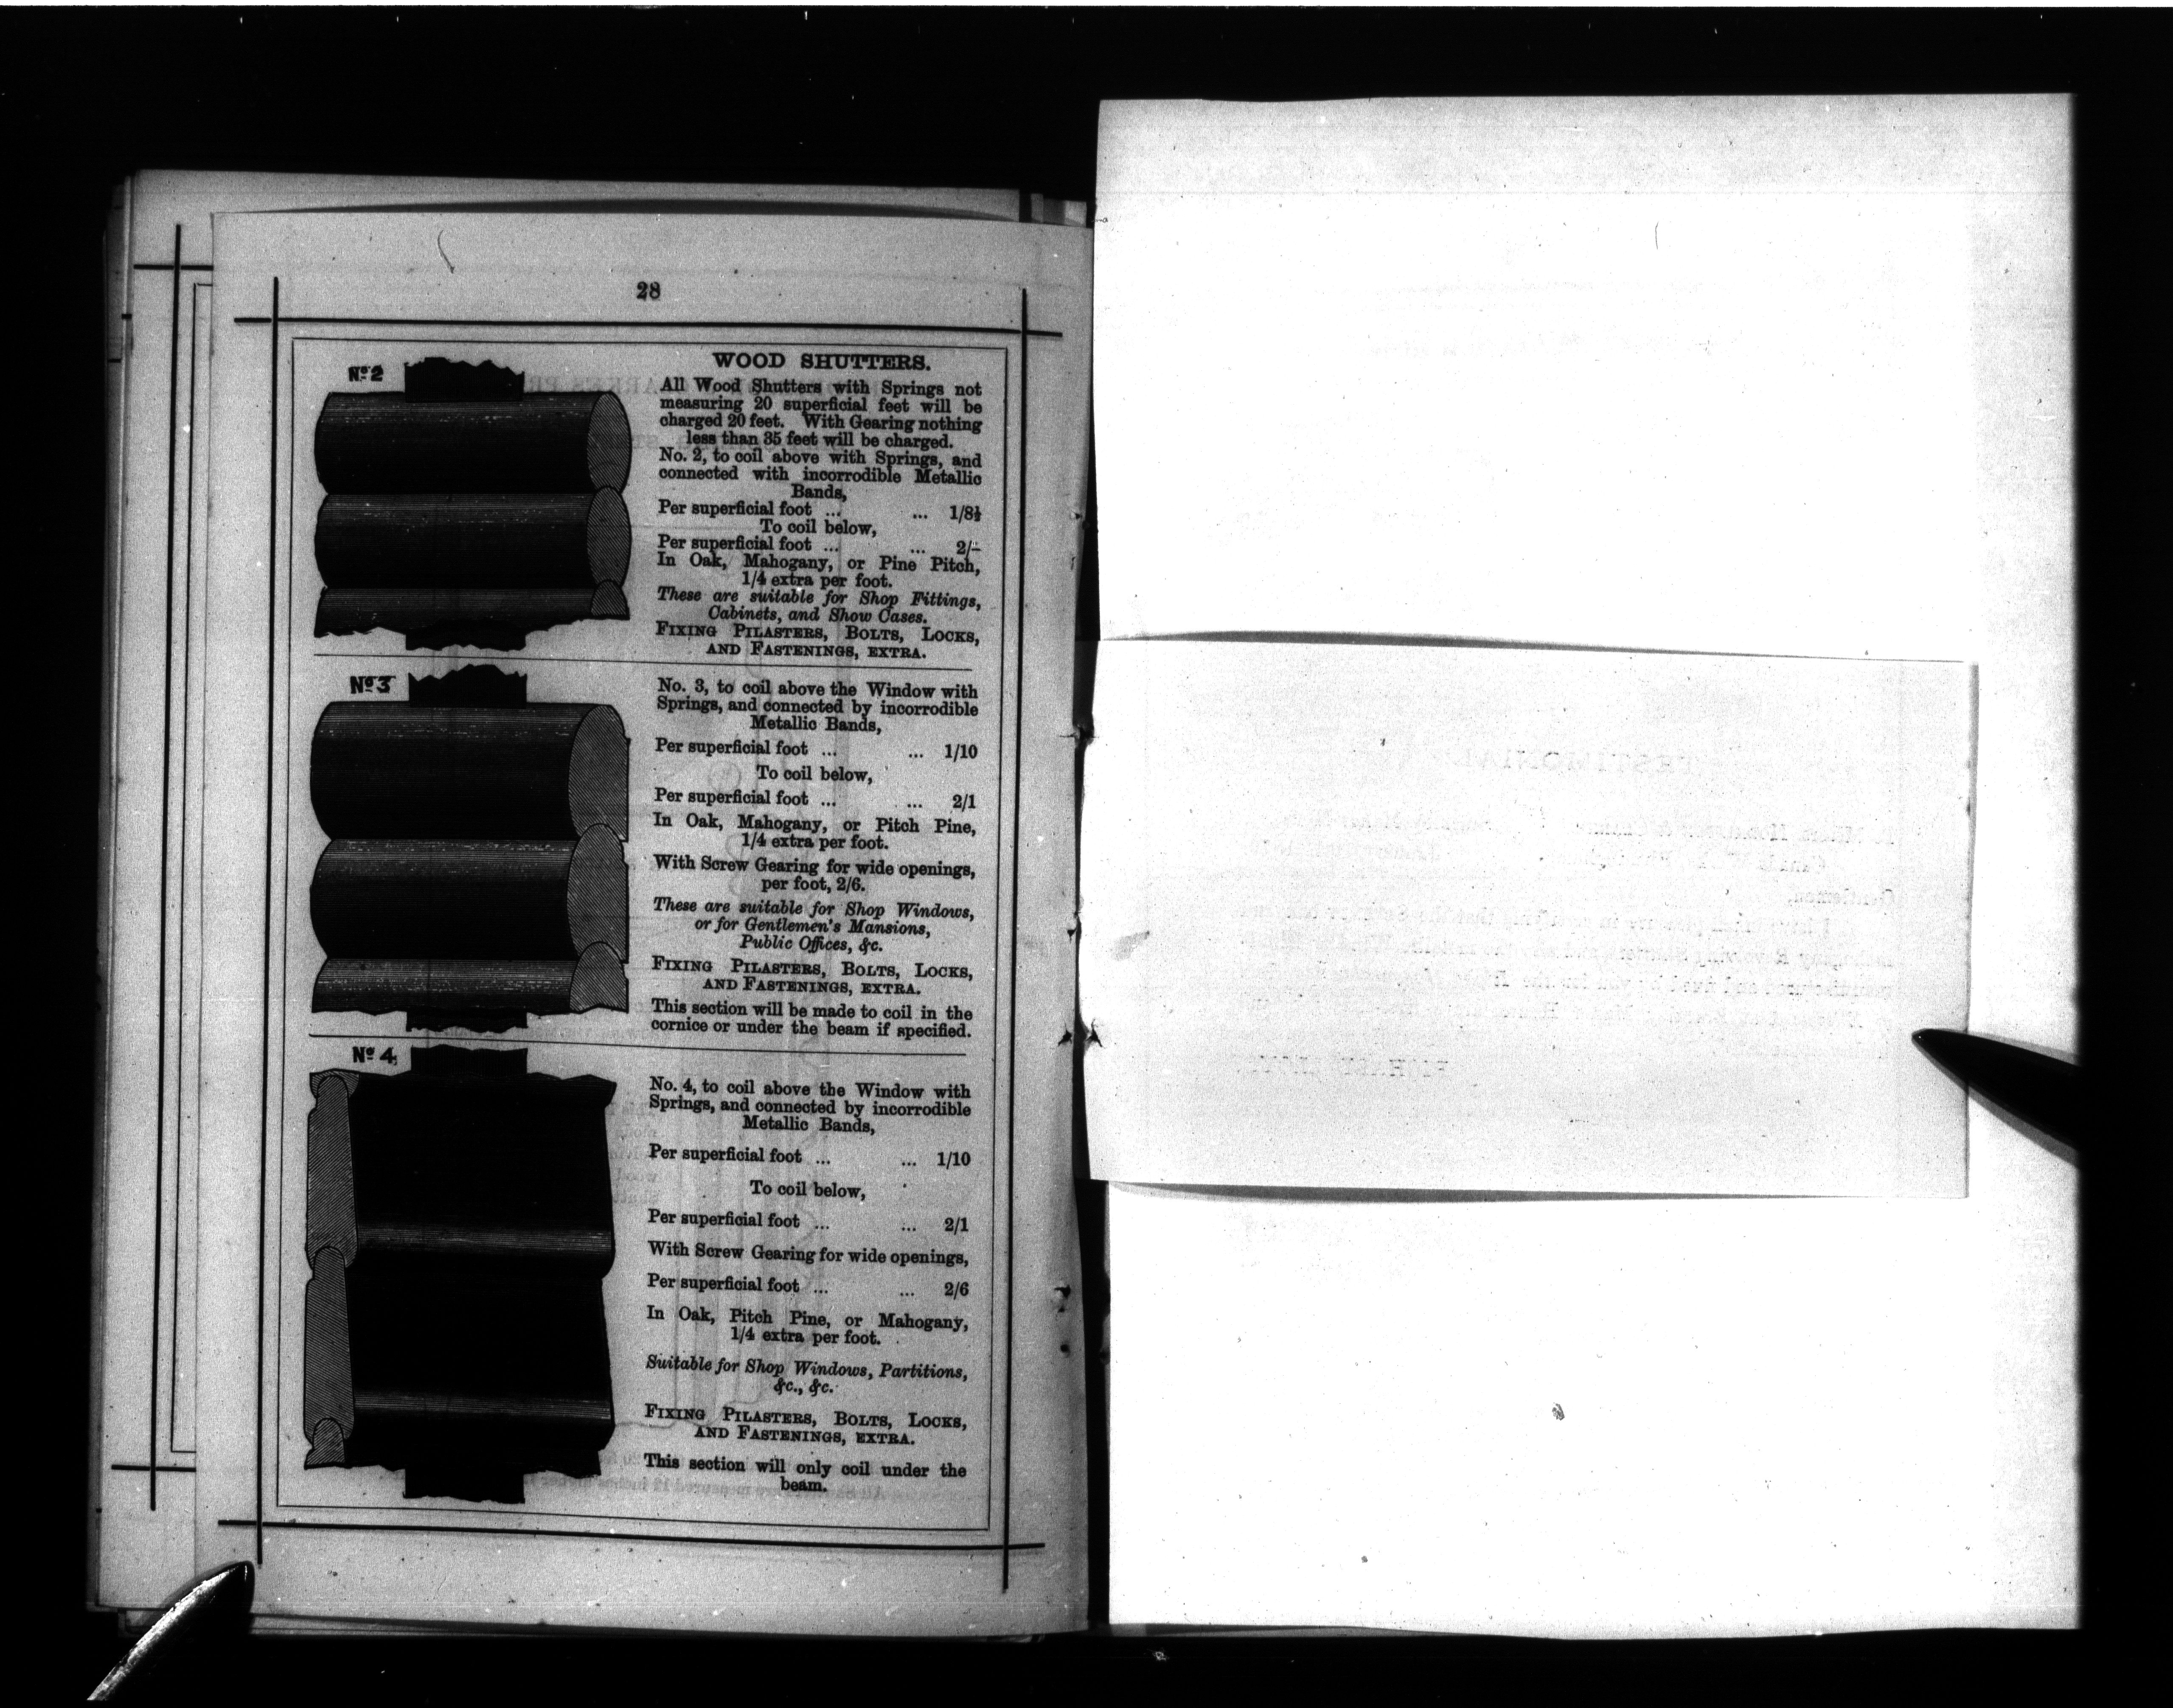 28
WOOD SHUTTERS.
No. 2
All Wood Shutters with Springs not
measuring 20 superficial feet will be
charged 20 feet. With Gearing nothing
less than 35 feet will be charged.
No. 2, to coil above with Springs, and
connected with incorrodible Metallic
Bands,
Per superficial foot ... ... 1/8½
To coil below,
Per superficial foot ... ... 2/-
In Oak, Mahogany, or Pine Pitch,
1/4 extra per foot.
These are suitable for Shop Fittings,
Cabinets, and Show Cases.
FIXING PILASTERS, BOLTS, LOCKS,
AND FASTENINGS, EXTRA.
No. 3
No. 3, to coil above the Window with
Springs, and connected by incorrodible
Metallic Bands,
Per superficial foot ... ... 1/10
To coil below,
Per superficial foot ... ... 2/1
In Oak, Mahogany, or Pitch Pine,
1/4 extra per foot.
With Screw Gearing for wide openings,
per foot, 2/6.
These are suitable for Shop Windows,
or for Gentlemen's Mansions,
Public Offices, &c.
FIXING PILASTERS, BOLTS, LOCKS,
AND FASTENINGS, EXTRA.
This section will be made to coil in the
cornice or under the beam if specified.
No. 4
No. 4, to coil above the Window with
Springs, and connected by incorrodible
Metallic Bands,
Per superficial foot ... ... 1/10
To coil below,
Per superficial foot ... ... 2/1
With Screw Gearing for wide openings,
Per superficial foot ... ... 2/6
In Oak, Pitch Pine, or Mahogany,
1/4 extra per foot.
Suitable for Shop Windows, Partitions,
&c., &c.
FIXING PILASTERS, BOLTS, LOCKS,
AND FASTENINGS, EXTRA.
This section will only coil under the
beam.